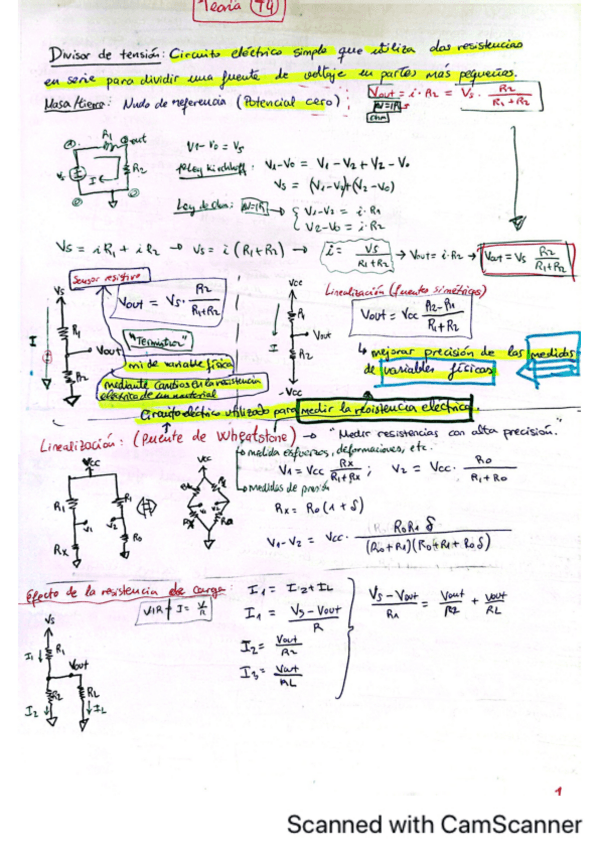 Teoría T4
Divisor de tensión: Circuito eléctrico simple que utiliza dos resistencias
en serie para dividir una fuente de voltaje en partes más pequeñas.
Masa/tierra: Nudo de referencia (Potencial cero);
Vout = i·R2 = Vs · R2 / R1+R2
V1-V0 = Vs
Ley Kirchhoff: V1-V0 = V1-V2+V2-V0
Vs = (V1-V2)+(V2-V0)
Ley de ohm: → { V1-V2 = i·R1
V2-V0 = i·R2
Vs = iR1 + iR2 → Vs = i(R1+R2) → i = Vs / R1+R2 → Vout = i·R2 → Vout = Vs R2 / R1+R2
Sensor resistivo
Vs
Vout = Vs· R2 / R1+R2
R1
Vout
R2
I
"Termistor"
mi de variable física
mediante cambios en la resistencia
eléctrica de un material
Vcc
R1
Vout
R2
I
-Vcc
Linealización (fuentes simétricas)
Vout = Vcc R2-R1 / R1+R2
↳ mejorar precisión de las medidas
de variables físicas
Circuito eléctrico utilizado para medir la resistencia eléctrica.
Linealización: (Puente de Wheatstone) → "Medir resistencias con alta precisión."
medida esfuerzos, deformaciones, etc.
medidas de presión
V1 = Vcc Rx / R1+Rx ; V2 = Vcc· R0 / R1+R0
Rx = R0(1+δ)
V1-V2 = Vcc· R0R1δ / (R0+R1)(R0+R1+R0δ)
Efecto de la resistencia de carga:
I1 = I2+IL
I1 = Vs-Vout / R
I2 = Vout / R2
I3 = Vout / RL
Vs-Vout / R1 = Vout / R2 + Vout / RL
Vs
I1
R1
Vout
R2
RL
I2
IL
1
Scanned with CamScanner